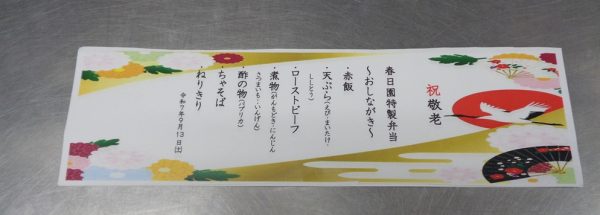 祝 敬老
春日園特製弁当
～おしながき～
・赤飯
・天ぷら(えび・まいたけ・
ししとう)
・ローストビーフ
・煮物(がんもどき・にんじん
さつまいも・いんげん)
・酢の物(パプリカ)
・ちゃそば
・ねりきり
令和7年9月13日(土)